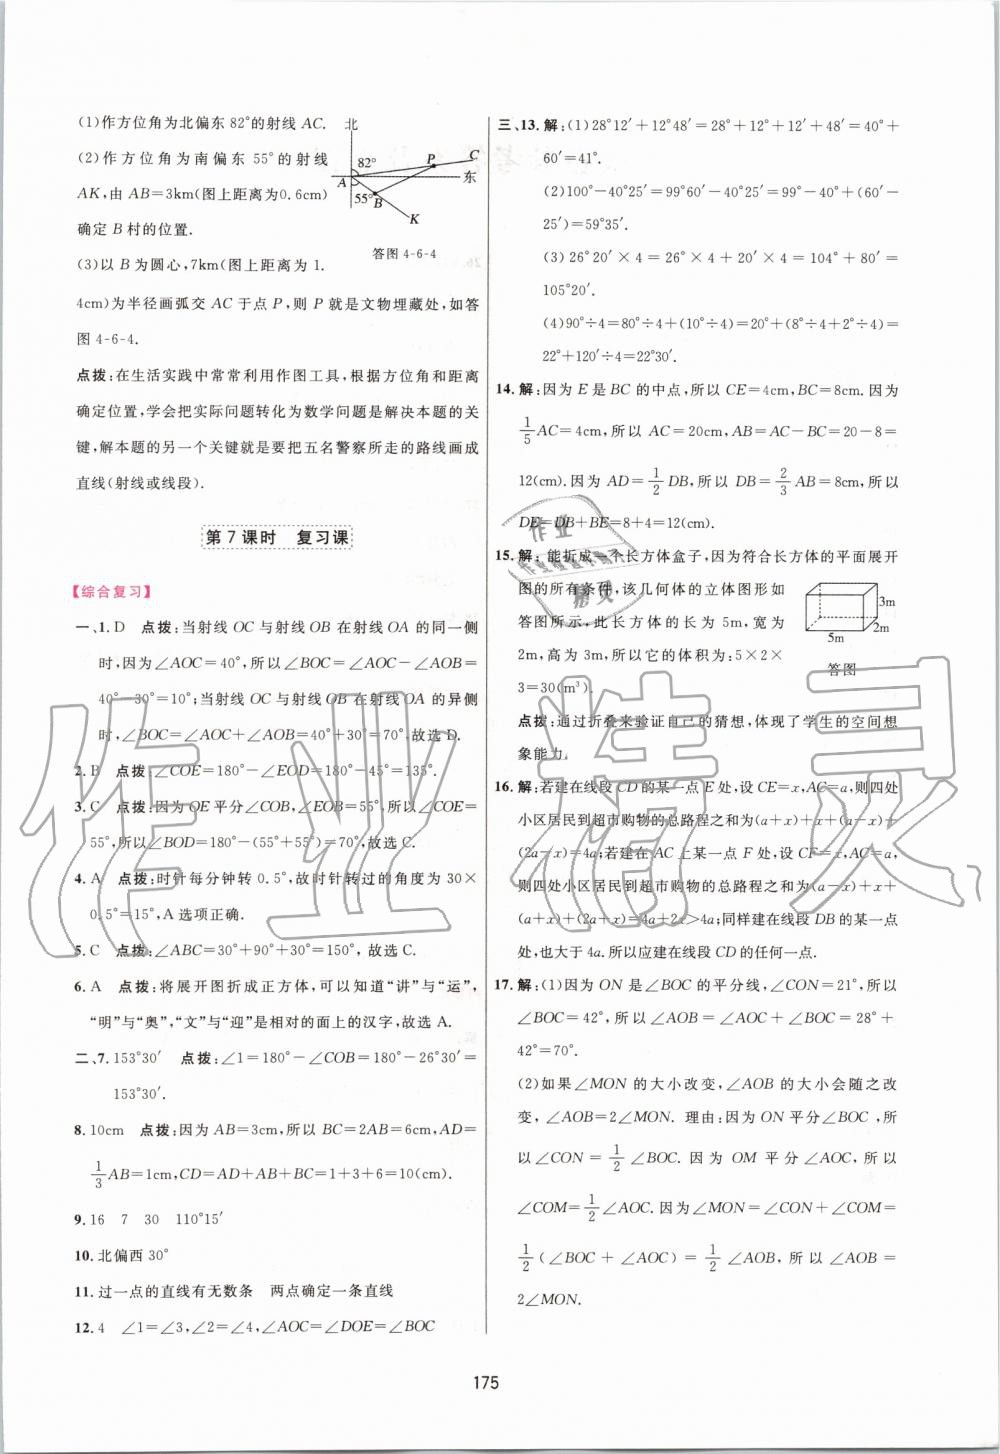 (1)作方位角为北偏东82°的射线AC.
(2)作方位角为南偏东55°的射线
AK,由AB=3km(图上距离为0.6cm)
确定B村的位置.
(3)以B为圆心,7km(图上距离为1.
4cm)为半径画弧交AC于点P,则P就是文物埋藏处,如答
图4-6-4.
北
82°
P
C
A
东
55°
B
K
答图4-6-4
点拨:在生活实践中常常利用作图工具,根据方位角和距离
确定位置,学会把实际问题转化为数学问题是解决本题的关
键,解本题的另一个关键就是要把五名警察所走的路线画成
直线(射线或线段).
第7课时 复习课
【综合复习】
一、1.D 点拨:当射线OC与射线OB在射线OA的同一侧
时,因为∠AOC=40°,所以∠BOC=∠AOC-∠AOB=
40°-30°=10°;当射线OC与射线OB在射线OA的异侧
时,∠BOC=∠AOC+∠AOB=40°+30°=70°,故选D.
2.B 点拨:∠COE=180°-∠EOD=180°-45°=135°.
3.C 点拨:因为OE平分∠COB,∠EOB=55°,所以∠COE=
55°,所以∠BOD=180°-(55°+55°)=70°,故选C.
4.A 点拨:时针每分钟转0.5°,故时针转过的角度为30×
0.5°=15°,A选项正确.
5.C 点拨:∠ABC=30°+90°+30°=150°,故选C.
6.A 点拨:将展开图折成正方体,可以知道“讲”与“运”,
“明”与“奥”,“文”与“迎”是相对的面上的汉字,故选A.
二、7.153°30′ 点拨:∠1=180°-∠COB=180°-26°30′=
153°30′.
8.10cm 点拨:因为AB=3cm,所以BC=2AB=6cm,AD=
1/3AB=1cm,CD=AD+AB+BC=1+3+6=10(cm).
9.16 7 30 110°15′
10.北偏西30°
11.过一点的直线有无数条 两点确定一条直线
12.4 ∠1=∠3,∠2=∠4,∠AOC=∠DOE=∠BOC
三、13.解:(1)28°12′+12°48′=28°+12°+12′+48′=40°+
60′=41°.
(2)100°-40°25′=99°60′-40°25′=99°-40°+(60′-
25′)=59°35′.
(3)26°20′×4=26°×4+20′×4=104°+80′=
105°20′.
(4)90°÷4=80°÷4+(10°÷4)=20°+(8°÷4+2°÷4)=
22°+120′÷4=22°30′.
14.解:因为E是BC的中点,所以CE=4cm,BC=8cm.因为
1/5AC=4cm,所以AC=20cm,AB=AC-BC=20-8=
12(cm).因为AD=1/2DB,所以DB=2/3AB=8cm,所以
DE=DB+BE=8+4=12(cm).
15.解:能折成一个长方体盒子,因为符合长方体的平面展开
图的所有条件,该几何体的立体图形如
答图所示,此长方体的长为5m,宽为
2m,高为3m,所以它的体积为:5×2×
3=30(m³).
3m
2m
5m
答图
点拨:通过折叠来验证自己的猜想,体现了学生的空间想
象能力.
16.解:若建在线段CD的某一点E处,设CE=x,AC=a,则四处
小区居民到超市购物的总路程之和为(a+x)+x+(a-x)+
(2a-x)=4a;若建在AC上某一点F处,设CF=x,AC=a,
则四处小区居民到超市购物的总路程之和为(a-x)+x+
(a+x)+(2a+x)=4a+2x>4a;同样建在线段DB的某一点
处,也大于4a.所以应建在线段CD的任何一点.
17.解:(1)因为ON是∠BOC的平分线,∠CON=21°,所以
∠BOC=42°,所以∠AOB=∠AOC+∠BOC=28°+
42°=70°.
(2)如果∠MON的大小改变,∠AOB的大小会随之改
变,∠AOB=2∠MON.理由:因为ON平分∠BOC,所
以∠CON=1/2∠BOC.因为OM平分∠AOC,所以
∠COM=1/2∠AOC.因为∠MON=∠CON+∠COM=
1/2(∠BOC+∠AOC)=1/2∠AOB,所以∠AOB=
2∠MON.
175
作业精灵